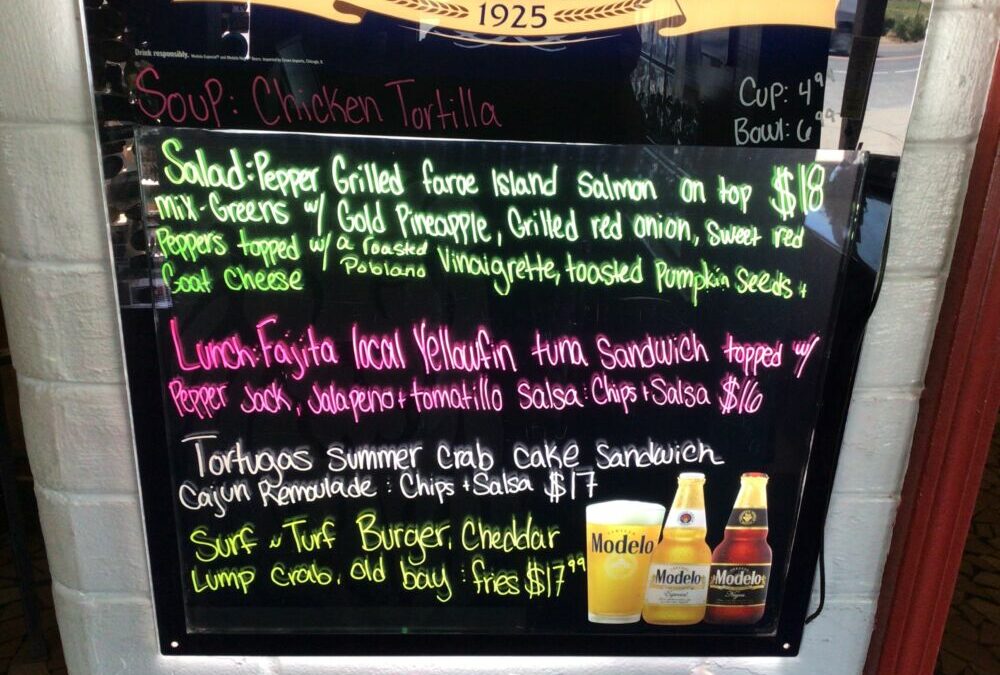 1925
Drink responsibly.
Soup: Chicken Tortilla
Cup: 4⁹⁹
Bowl: 6⁹⁹
Salad: Pepper Grilled faroe Island Salmon on top $18
mix-Greens w/ Gold Pineapple, Grilled red onion, sweet red
Peppers topped w/ a roasted Poblano Vinaigrette, toasted Pumpkin Seeds +
Goat Cheese
Lunch: Fajita local Yellowfin tuna sandwich topped w/
Pepper Jack, Jalapeno + tomatillo Salsa: Chips + Salsa $16
Tortugas summer crab cake sandwich
Cajun Remoulade: Chips + Salsa $17
Surf n Turf Burger, Cheddar
Lump crab, old bay: fries $17⁹⁹
Modelo
Modelo
Especial
Modelo
Negra